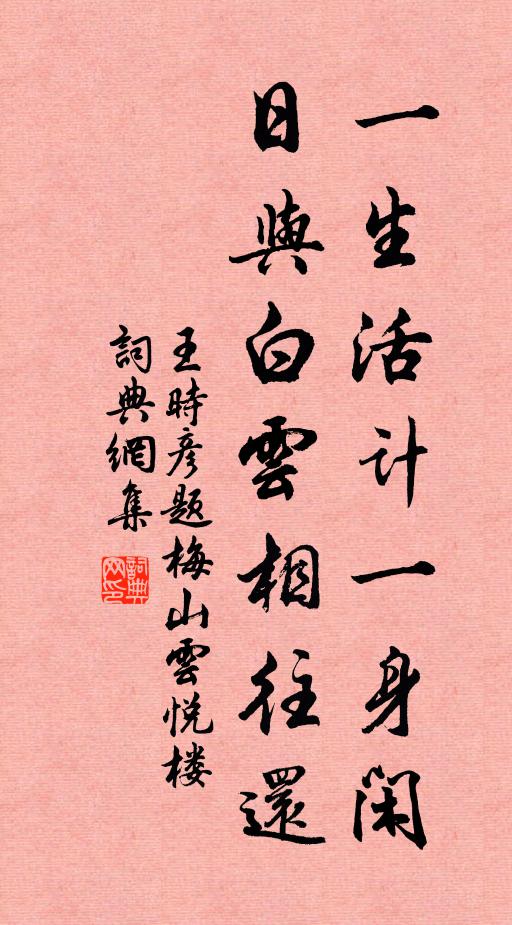 一生活计一身闲
日與白雲相往還
王時彦题梅山雲悦楼
詞典網集
詞典网印